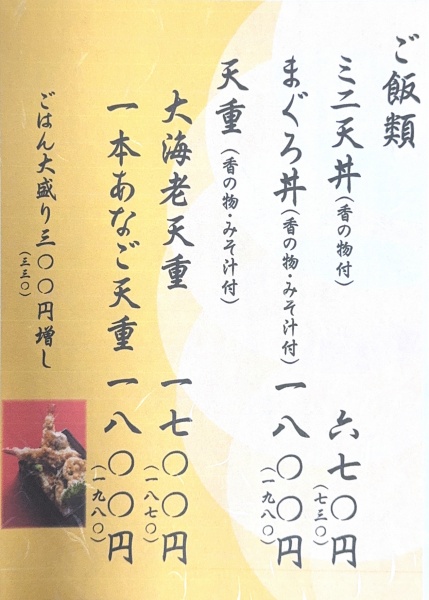 ご飯類
ミニ天丼（香の物付） 六七〇円
（七三〇）
まぐろ丼（香の物・みそ汁付） 一八〇〇円
（一九八〇）
天重（香の物・みそ汁付）
大海老天重 一七〇〇円
（一八七〇）
一本あなご天重 一八〇〇円
（一九八〇）
ごはん大盛り三〇〇円増し
（三三〇）